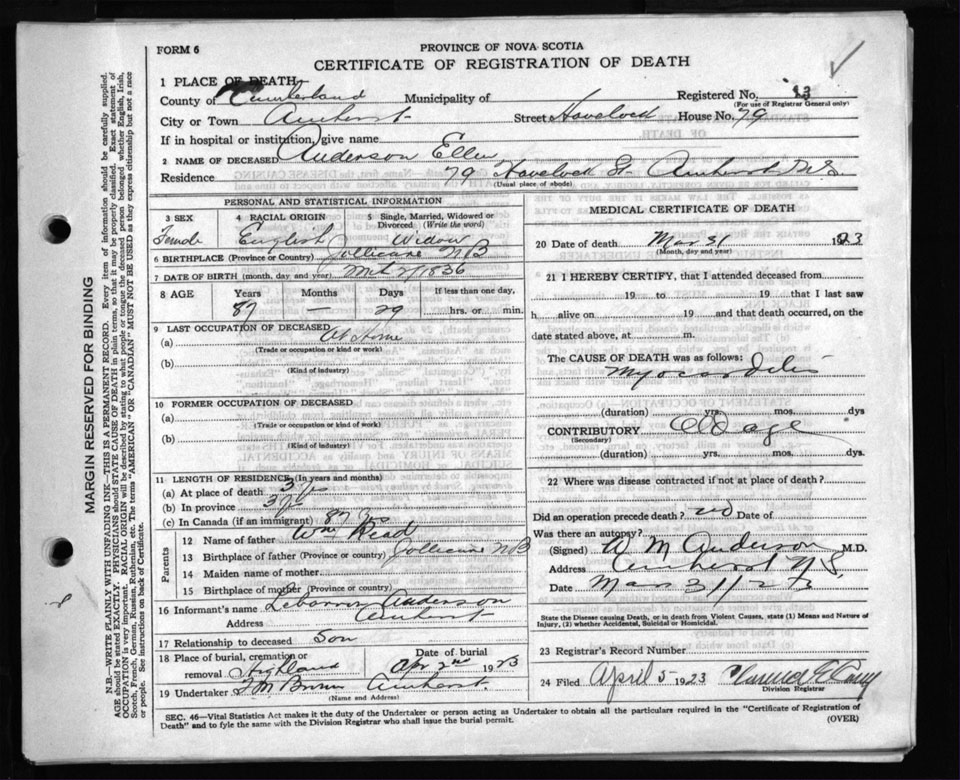 FORM 6
PROVINCE OF NOVA SCOTIA
CERTIFICATE OF REGISTRATION OF DEATH
1 PLACE OF DEATH
County of Cumberland Municipality of Registered No. 13
(For use of Registrar General only)
City or Town Amherst Street Havelock House No. 79
If in hospital or institution, give name
2 NAME OF DECEASED Anderson Ellen
Residence 79 Havelock St. Amherst N.S.
(Usual place of abode)
PERSONAL AND STATISTICAL INFORMATION
3 SEX 4 RACIAL ORIGIN 5 Single, Married, Widowed or Divorced (Write the word)
Female English Widow
6 BIRTHPLACE (Province or Country) Jollicure NB
7 DATE OF BIRTH (month, day and year) 1836
8 AGE Years Months Days If less than one day,
87 — 29 hrs. or min.
9 LAST OCCUPATION OF DECEASED
(a) At Home
(Trade or occupation or kind or work)
(b)
(Kind of industry)
10 FORMER OCCUPATION OF DECEASED
(a)
(Trade or occupation or kind of work)
(b)
(Kind of Industry)
11 LENGTH OF RESIDENCE (In years and months)
(a) At place of death 3
(b) In province 3
(c) In Canada (if an immigrant) 87
Parents
12 Name of father Wm Read
13 Birthplace of father (Province or country) Jollicure NB
14 Maiden name of mother
15 Birthplace of mother (Province or country)
16 Informant's name Anderson
Address Amherst
17 Relationship to deceased Son
18 Place of burial, cremation or removal Highland Date of burial Apr 2nd 1923
19 Undertaker Amherst.
(Name and Address)
MEDICAL CERTIFICATE OF DEATH
20 Date of death Mar 31 1923
(Month, day and year)
21 I HEREBY CERTIFY, that I attended deceased from
19 to 19 that I last saw
h alive on 19 and that death occurred, on the
date stated above, at m.
The CAUSE OF DEATH was as follows:
Myocarditis
(duration) yrs. mos. dys
CONTRIBUTORY Old age
(Secondary)
(duration) yrs. mos. dys.
22 Where was disease contracted if not at place of death?
Did an operation precede death? no Date of
Was there an autopsy?
(Signed) A M Anderson M.D.
Address Amherst N.S.
Date Mar 31/23
State the Disease causing Death, or in death from Violent Causes, state (1) Means and Nature of Injury, (2) whether Accidental, Suicidal or Homicidal.
23 Registrar's Record Number
24 Filed April 5 1923
Division Registrar
SEC. 46—Vital Statistics Act makes it the duty of the Undertaker or person acting as Undertaker to obtain all the particulars required in the "Certificate of Registration of
Death" and to fyle the same with the Division Registrar who shall issue the burial permit.
(OVER)
MARGIN RESERVED FOR BINDING
N.B.—WRITE PLAINLY WITH UNFADING INK—THIS IS A PERMANENT RECORD. Every item of information should be carefully supplied.
AGE should be stated EXACTLY. PHYSICIANS should STATE CAUSE OF DEATH in plain terms, so that it may be properly classified. Exact statement of
OCCUPATION is very important. RACIAL ORIGIN will be described by stating to what people or tongue the deceased person belonged whether English, Irish,
Scotch, French, German, Russian, Ruthenian, etc. The terms "AMERICAN" OR "CANADIAN" MUST NOT BE USED as they express citizenship but not a race
or people. See instructions on back of Certificate.